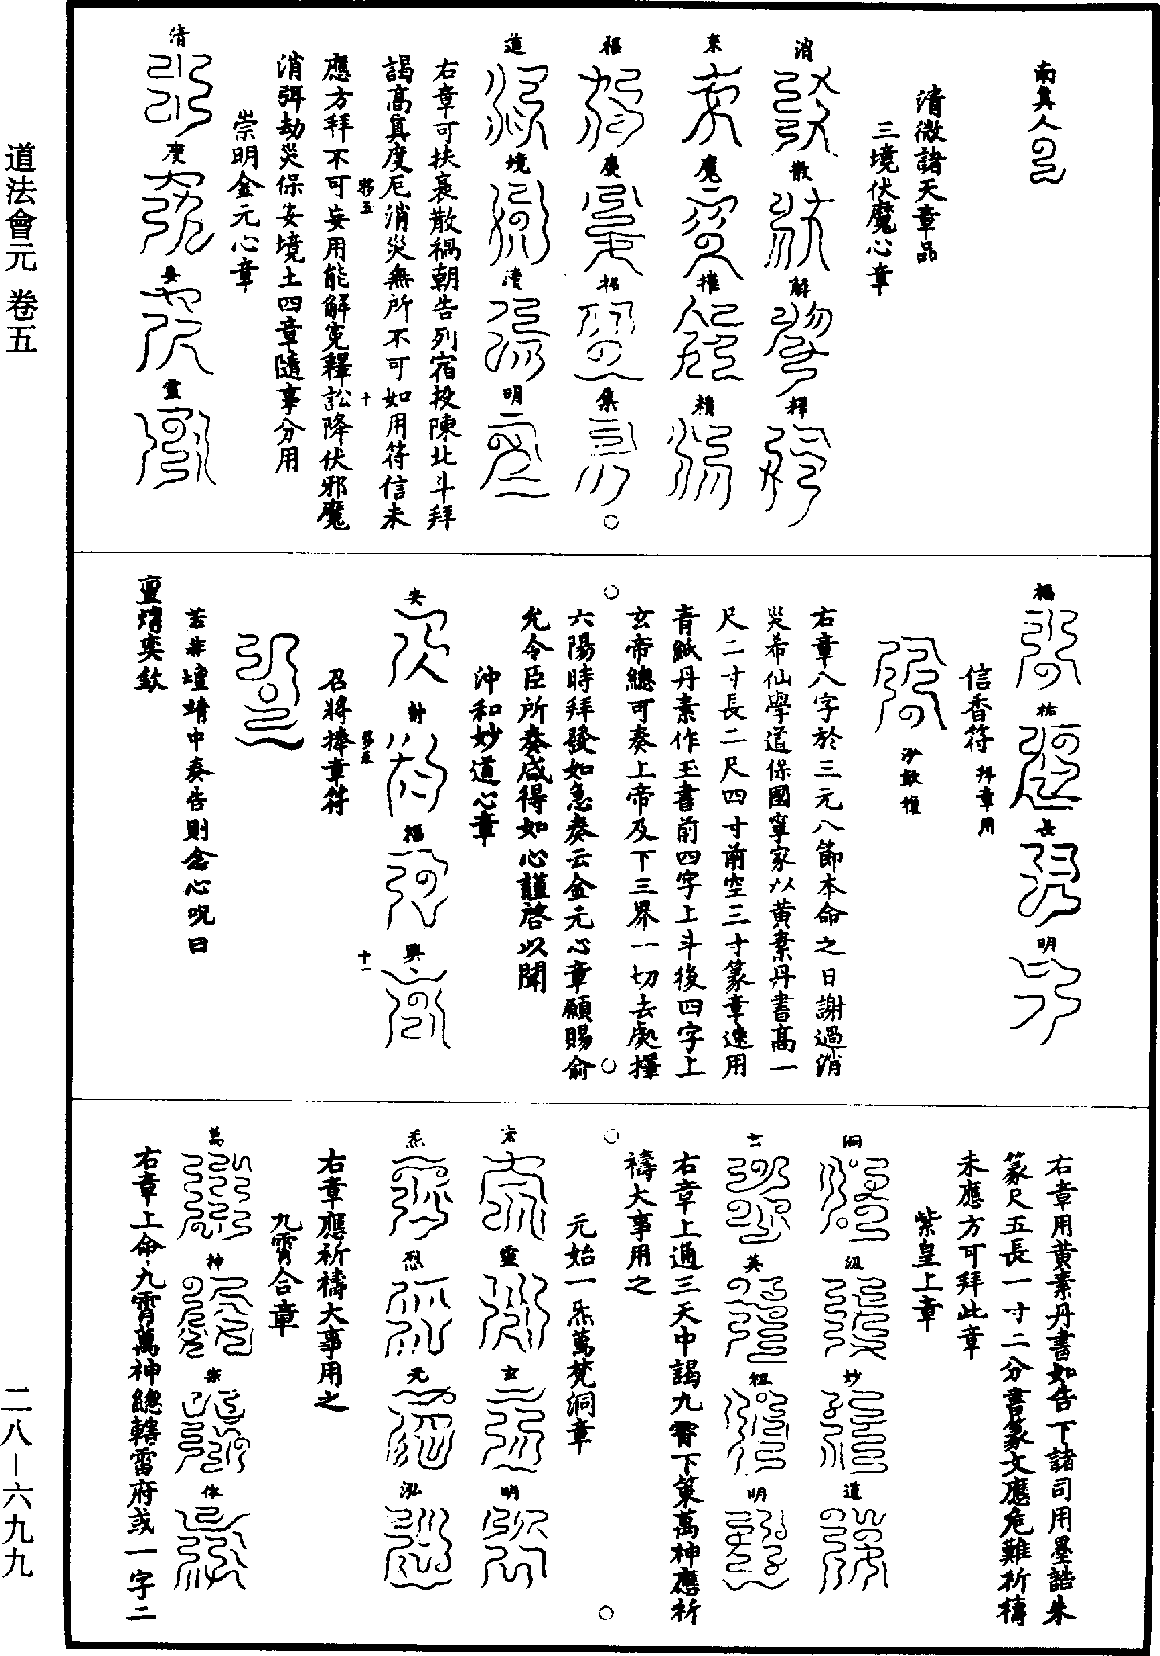 道法會元 卷五
二八—六九九
南真人
清微諸天章品
三境伏魔心章
消 散 解 釋
東 魔 摧 精
福 慶 招 集
道 境 清 明
右章可扶衰散禍朝告列宿投陳北斗拜
謁高真度厄消災無所不可如用符信未
應方拜不可妄用能解冤釋訟降伏邪魔
移五 十
消弭劫災保安境土四章隨事分用
崇明金元心章
清 慶 安 靈
福 祐 長 明
信香符 拜章用
右章八字於三元八節本命之日謝過消
災希仙學道保國寧家以黃素丹書高一
尺二寸長二尺四寸前空三寸篆章速用
青紙丹素作玉書前四字上斗後四字上
玄帝總可奏上帝及下三界一切去處擇
六陽時拜發如急奏云金元心章願賜俞
允令臣所奏咸得如心謹啓以聞
沖和妙道心章
安 福 興
十一
召將捧章符
若非壇靖中奏告則念心呪曰
右章用黃素丹書如告下諸司用墨誥朱
篆尺五長一寸二分書篆文應危難祈禱
未應方可拜此章
紫皇上章
洞 妙 道
玄 英 祖 明
右章上通三天中謁九霄下策萬神應祈
禱大事用之
元始一炁萬梵洞章
靈 玄 明
炁 元 泓
右章應祈禱大事用之
九霄合章
萬 神
右章上命九霄萬神總轄雷府或一字二